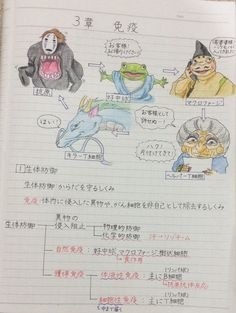 3章 免疫
お客様!
お帰りください!
抗原
好中球
マクロファージ
お客様とて
許せぬ…
はい!
ハク!
片付けてきて!
キラーT細胞
ヘルパーT細胞
1 生体防御
生体防御 からだを守るしくみ
免疫:体内に侵入した異物や、がん細胞を非自己として除去するしくみ
生体防御 異物の侵入阻止 物理的防御
化学的防御 リゾチーム
自然免疫:好中球、マクロファージ、樹状細胞
食作用
獲得免疫 体液性免疫:主にB細胞
(リンパ球)
抗原抗体反応
細胞性免疫:主にT細胞
(リンパ球)